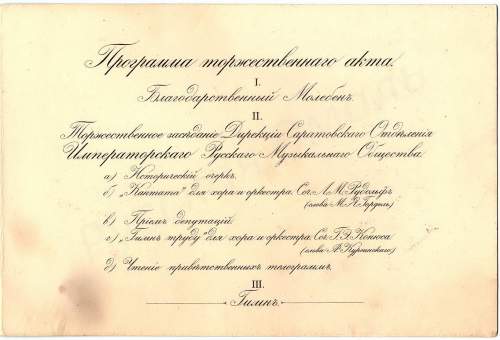 Программа торжественнаго акта.
I.
Благодарственный Молебенъ.
II.
Торжественное засѣданіе Дирекціи Саратовскаго Отдѣленія
Императорскаго Русскаго Музыкальнаго Общества:
а) Историческій очеркъ.
б) „Кантата" для хора и оркестра. Соч. Л. М. Рудольфъ
(слова М. Я. Гордель)
в) Пріемъ депутацій.
г) „Гимнъ труду" для хора и оркестра. Соч. Г. Э. Конюса
(слова А. Курсинскаго)
д) Чтеніе привѣтственныхъ телеграммъ.
III.
Гимнъ.